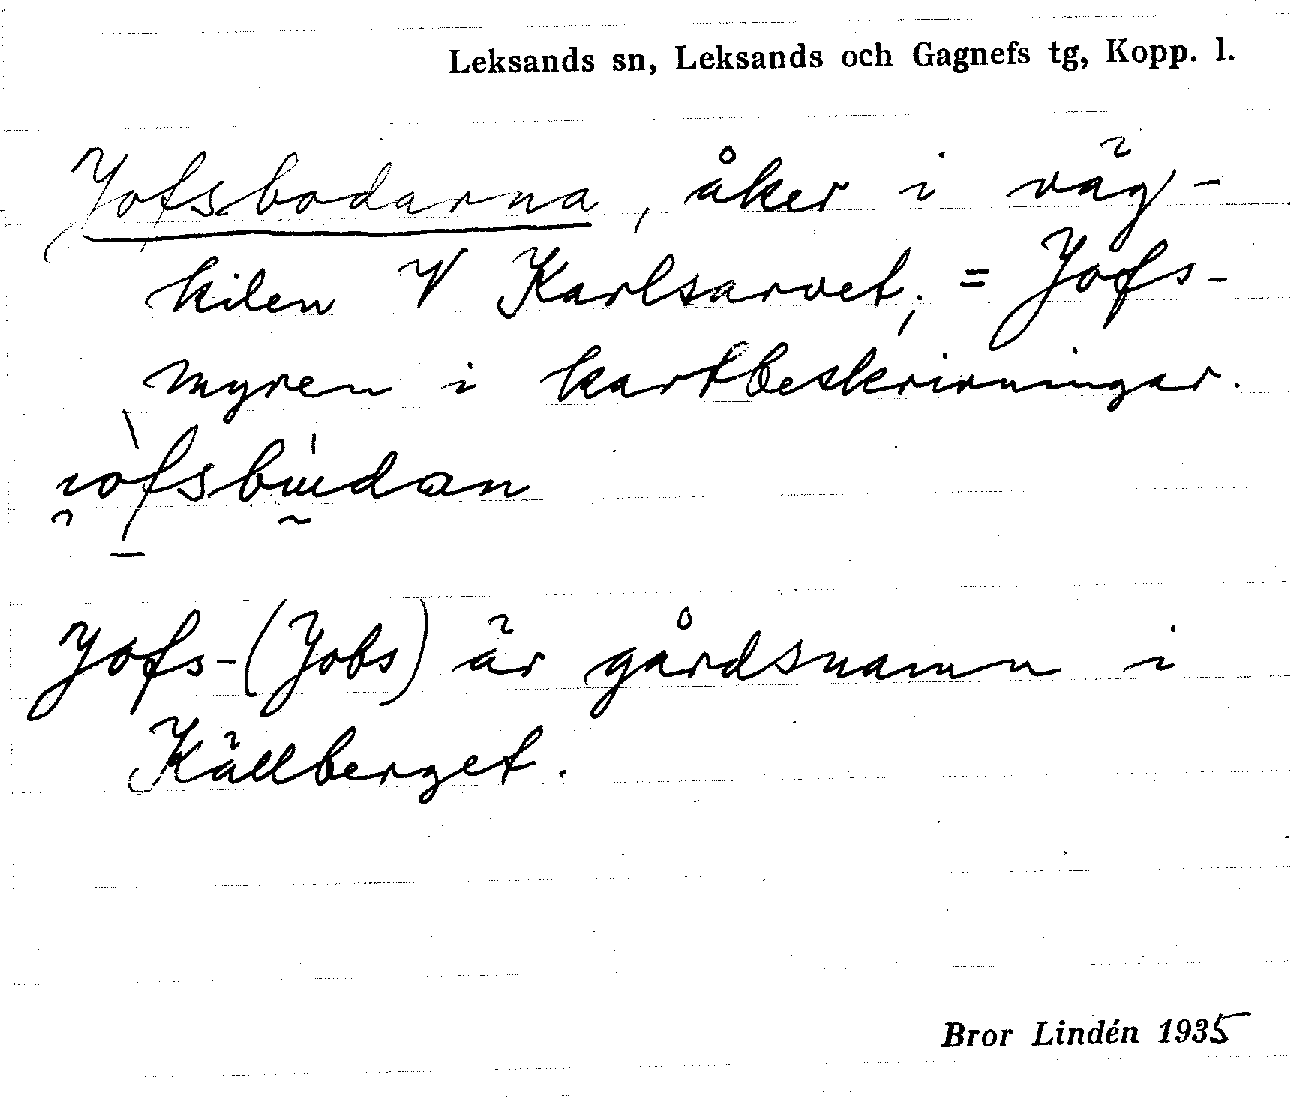 Leksands sn, Leksands och Gagnefs tg, Kopp. l.
Jofsbodarna, åker i väg-
kilen V Karlsarvet; = Jofs-
myren i kartbeskrivningar.
Jofs-(Jobs) är gårdsnamn i
Källberget.
Bror Lindén 1935